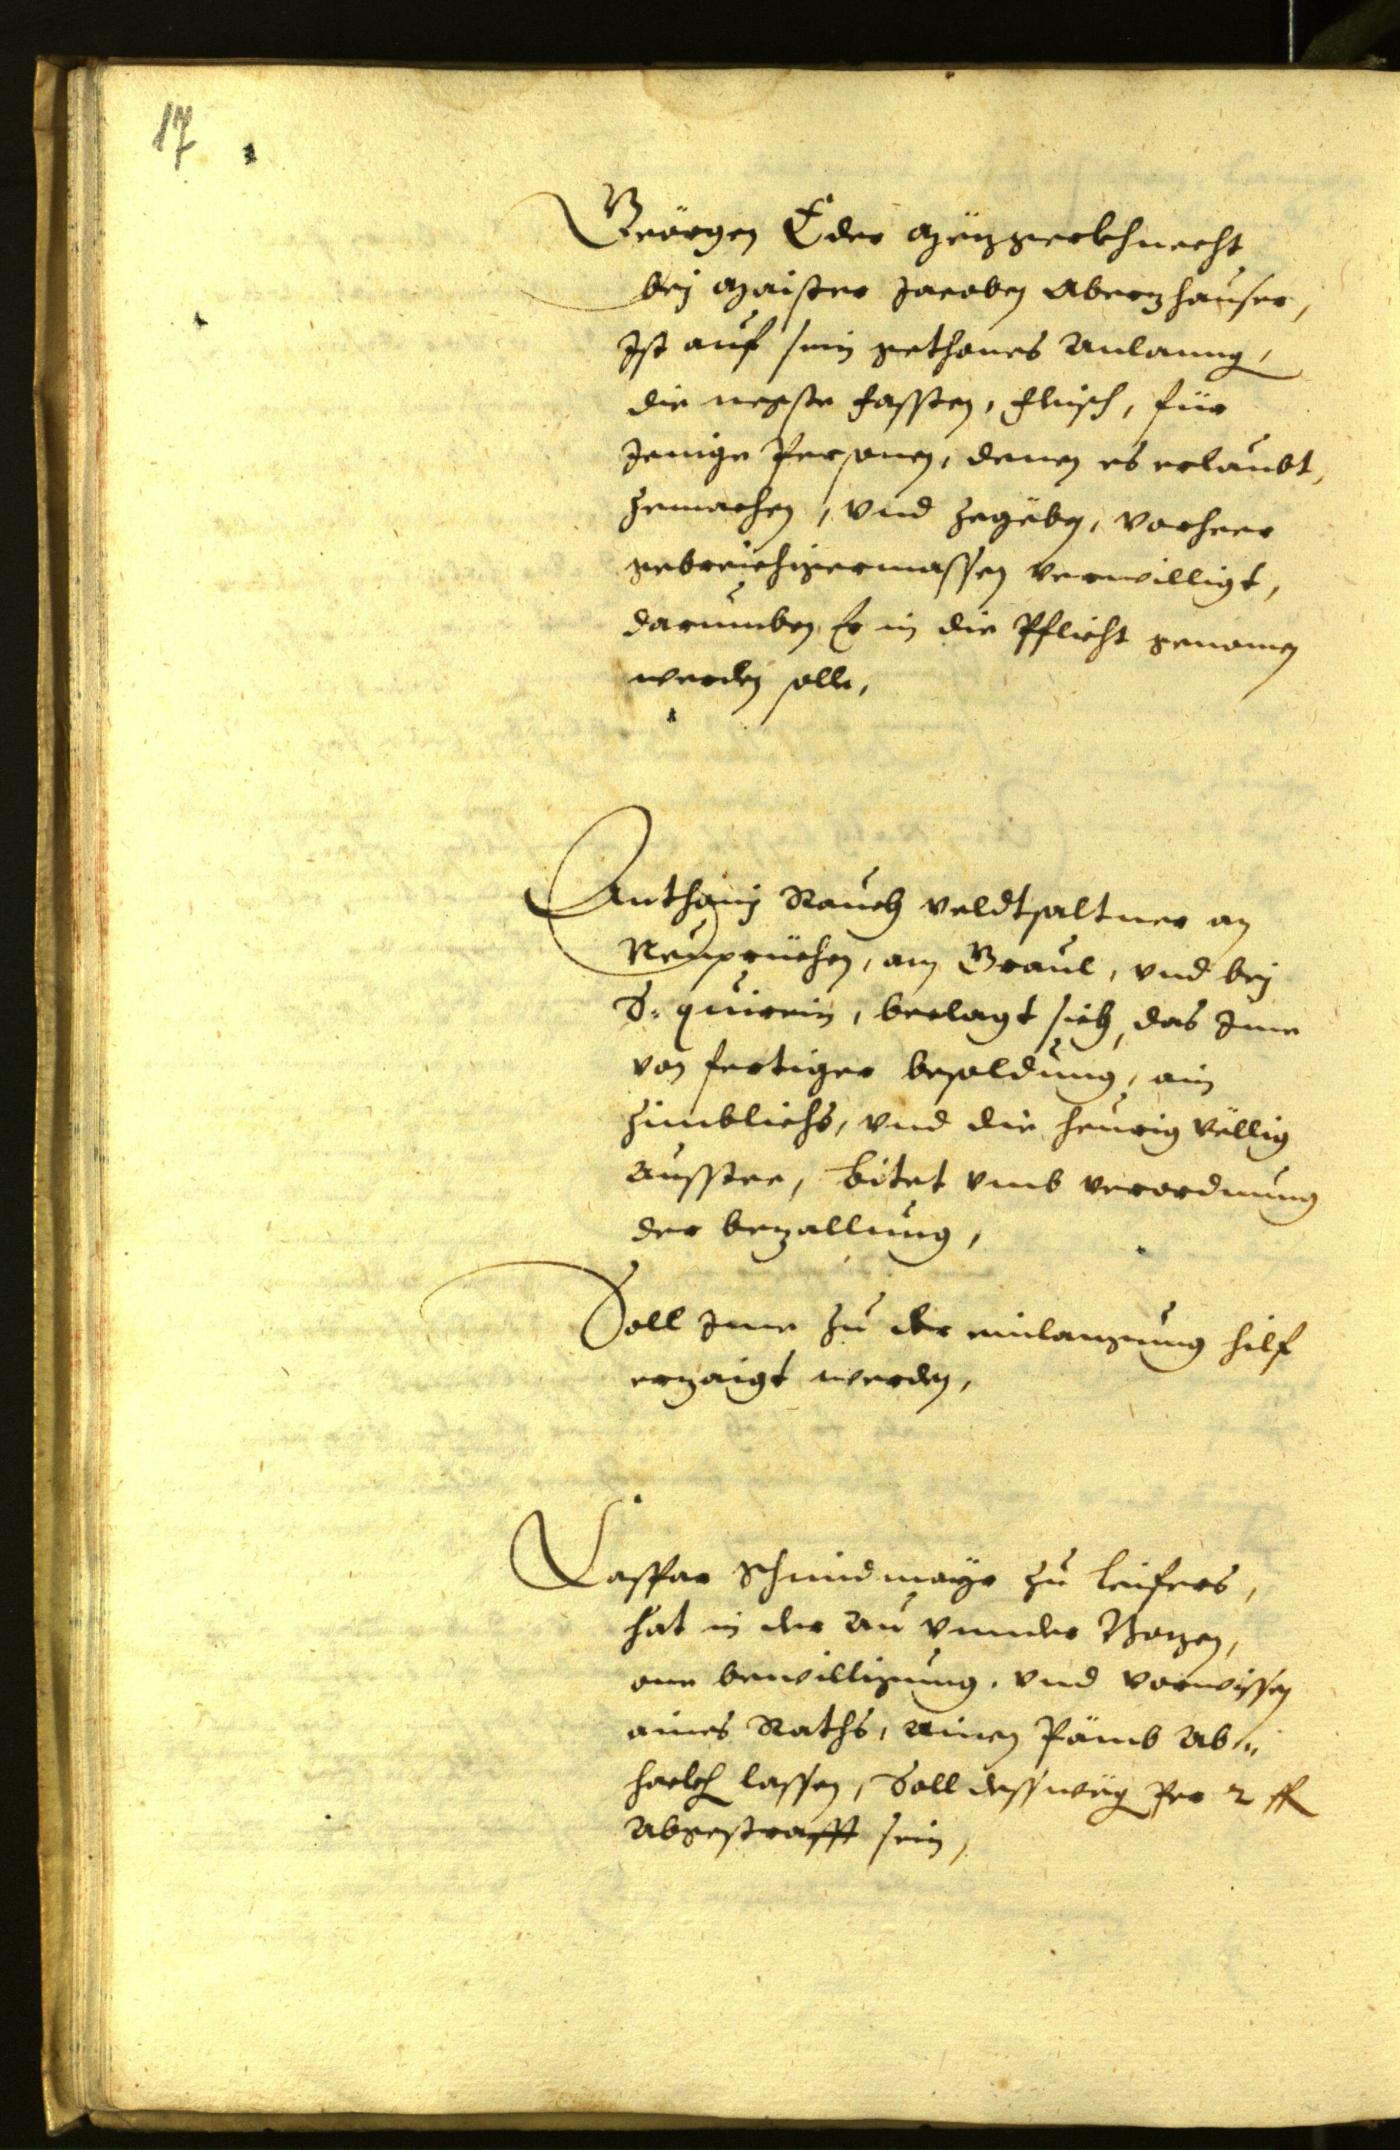 17
Geörgen Eder Mezgerkhnecht
bey Maister Jacoben Abertzhauser,
Ist auf sein gethones Anlanng,
die negste Fassten, Fleisch, für
Jenige Personen, denen es erlaubt,
zemachen, vnd zegeben, vorheer
gebreichigermassen verwilligt,
darumben Er in die Pflicht genomen
werden solle,
Anthonj Rauch veldtsaltner an
Neuprüchen, am Graul, vnd bey
S. quirein, beclagt sich, das Ime
von fertiger besoldung, ain
zimblichs, vnd die heurig völlig
Aussteen, bitet vmb verordnung
der bezallung,
Soll Ime zu der einlangung hilf
erzaigt werden,
Casspar Schmidmayr zu Leifers,
hat in der Au vnnder Bozen,
one bewilligung, vnd vorwissen
aines Raths, Ainen Pämb Ab„
hackh lassen, Soll dessweg per 2 ff
Abgestrafft sein,